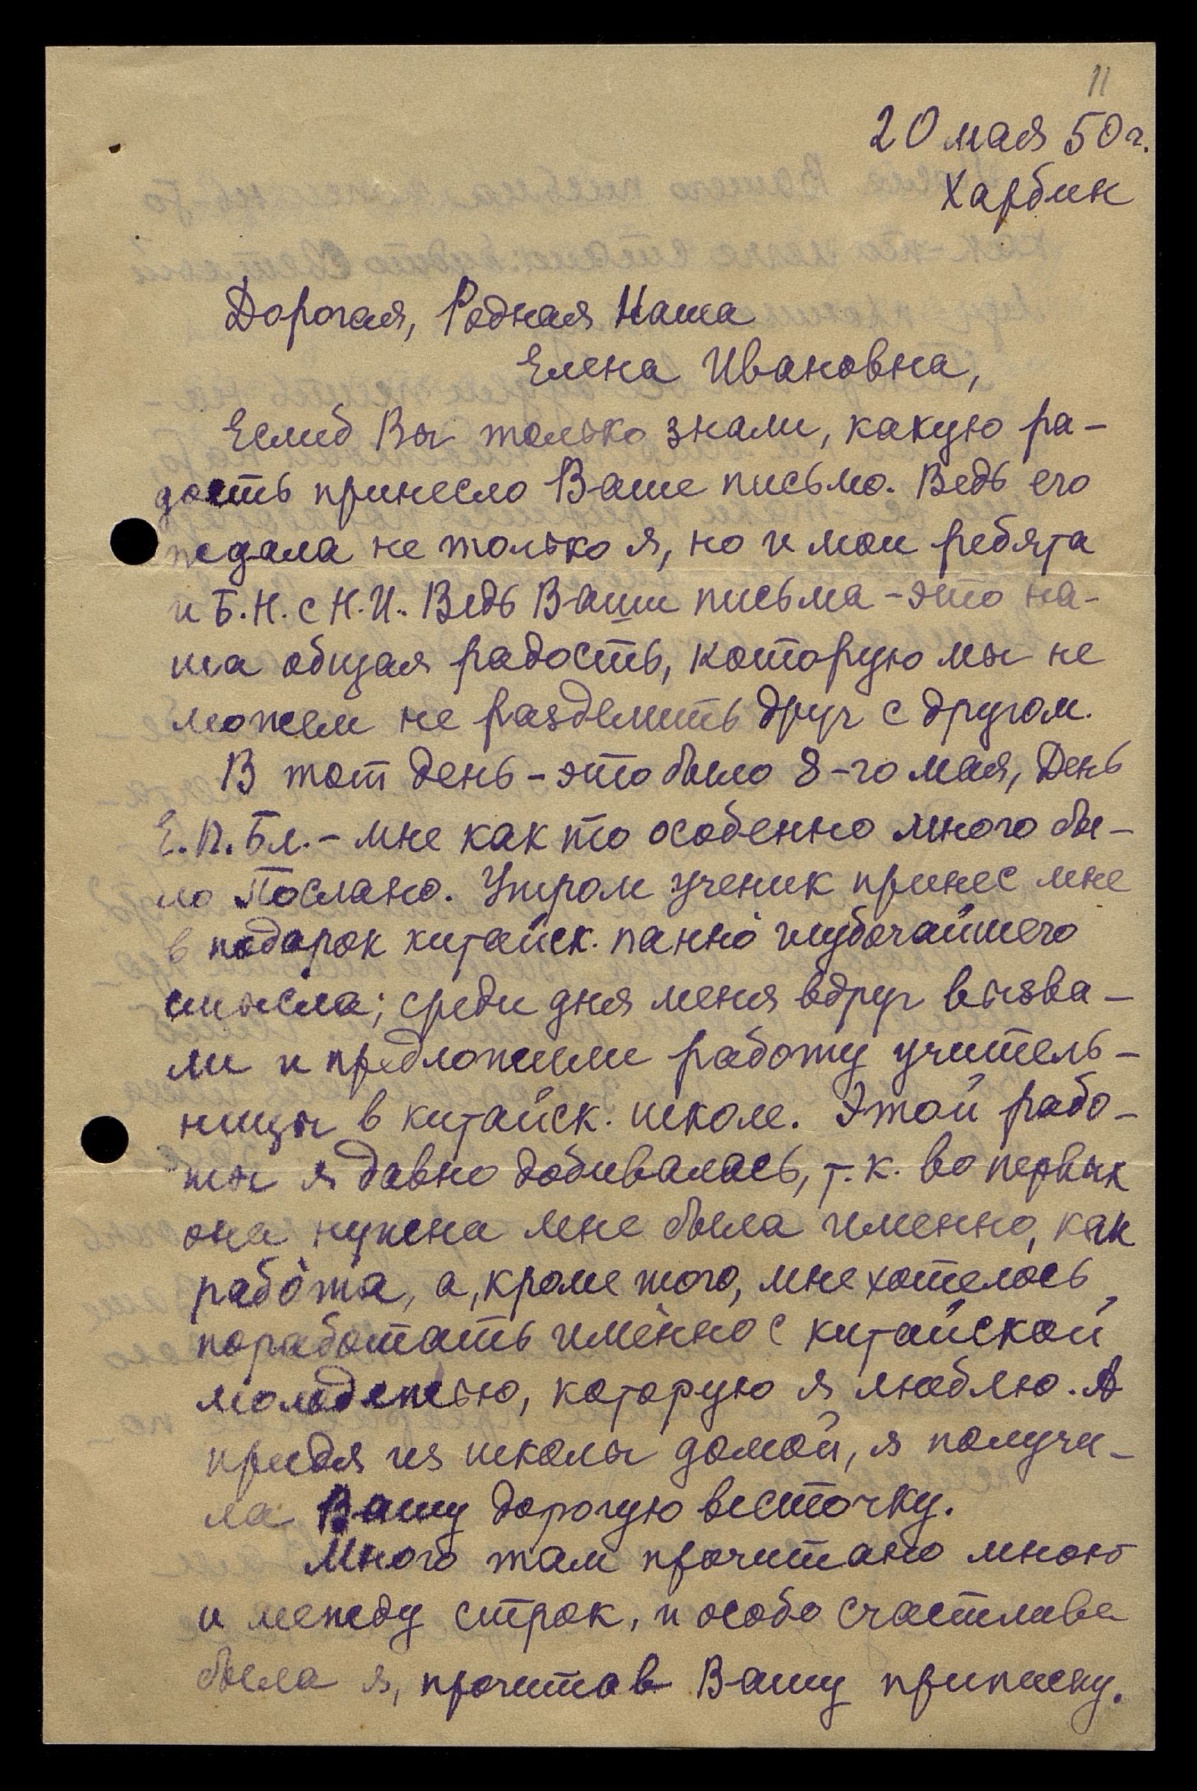 11
20 мая 50 г.
Харбин
Дорогая, Родная Наша
Елена Ивановна,
Еслиб Вы только знали, какую ра-
дость принесло Ваше письмо. Ведь его
ждала не только я, но и мои ребята
и Б.Н. с Н.И.. Ведь Ваши письма – это на-
ша общая радость, которую мы не
можем не разделить друг с другом.
В тот день – это было 8-го мая, День
Е.П.Бл. – мне как то особенно много бы-
ло Послано. Утром ученик принес мне
в подарок китайск. панно глубочайшего
смысла; среди дня меня вдруг вызва-
ли и предложили работу учитель-
ницы в китайск. школе. Этой рабо-
ты я давно добивалась, т.к. во первых
она нужна мне была именно, как
работа, а, кроме того, мне хотелось
поработать именно с китайской
молодежью, которую я люблю. А
придя из школы домой, я получи-
ла Вашу дорогую весточку.
Много там прочитано мною
и между строк, и особо счастлива
была я, прочитав Вашу приписку.